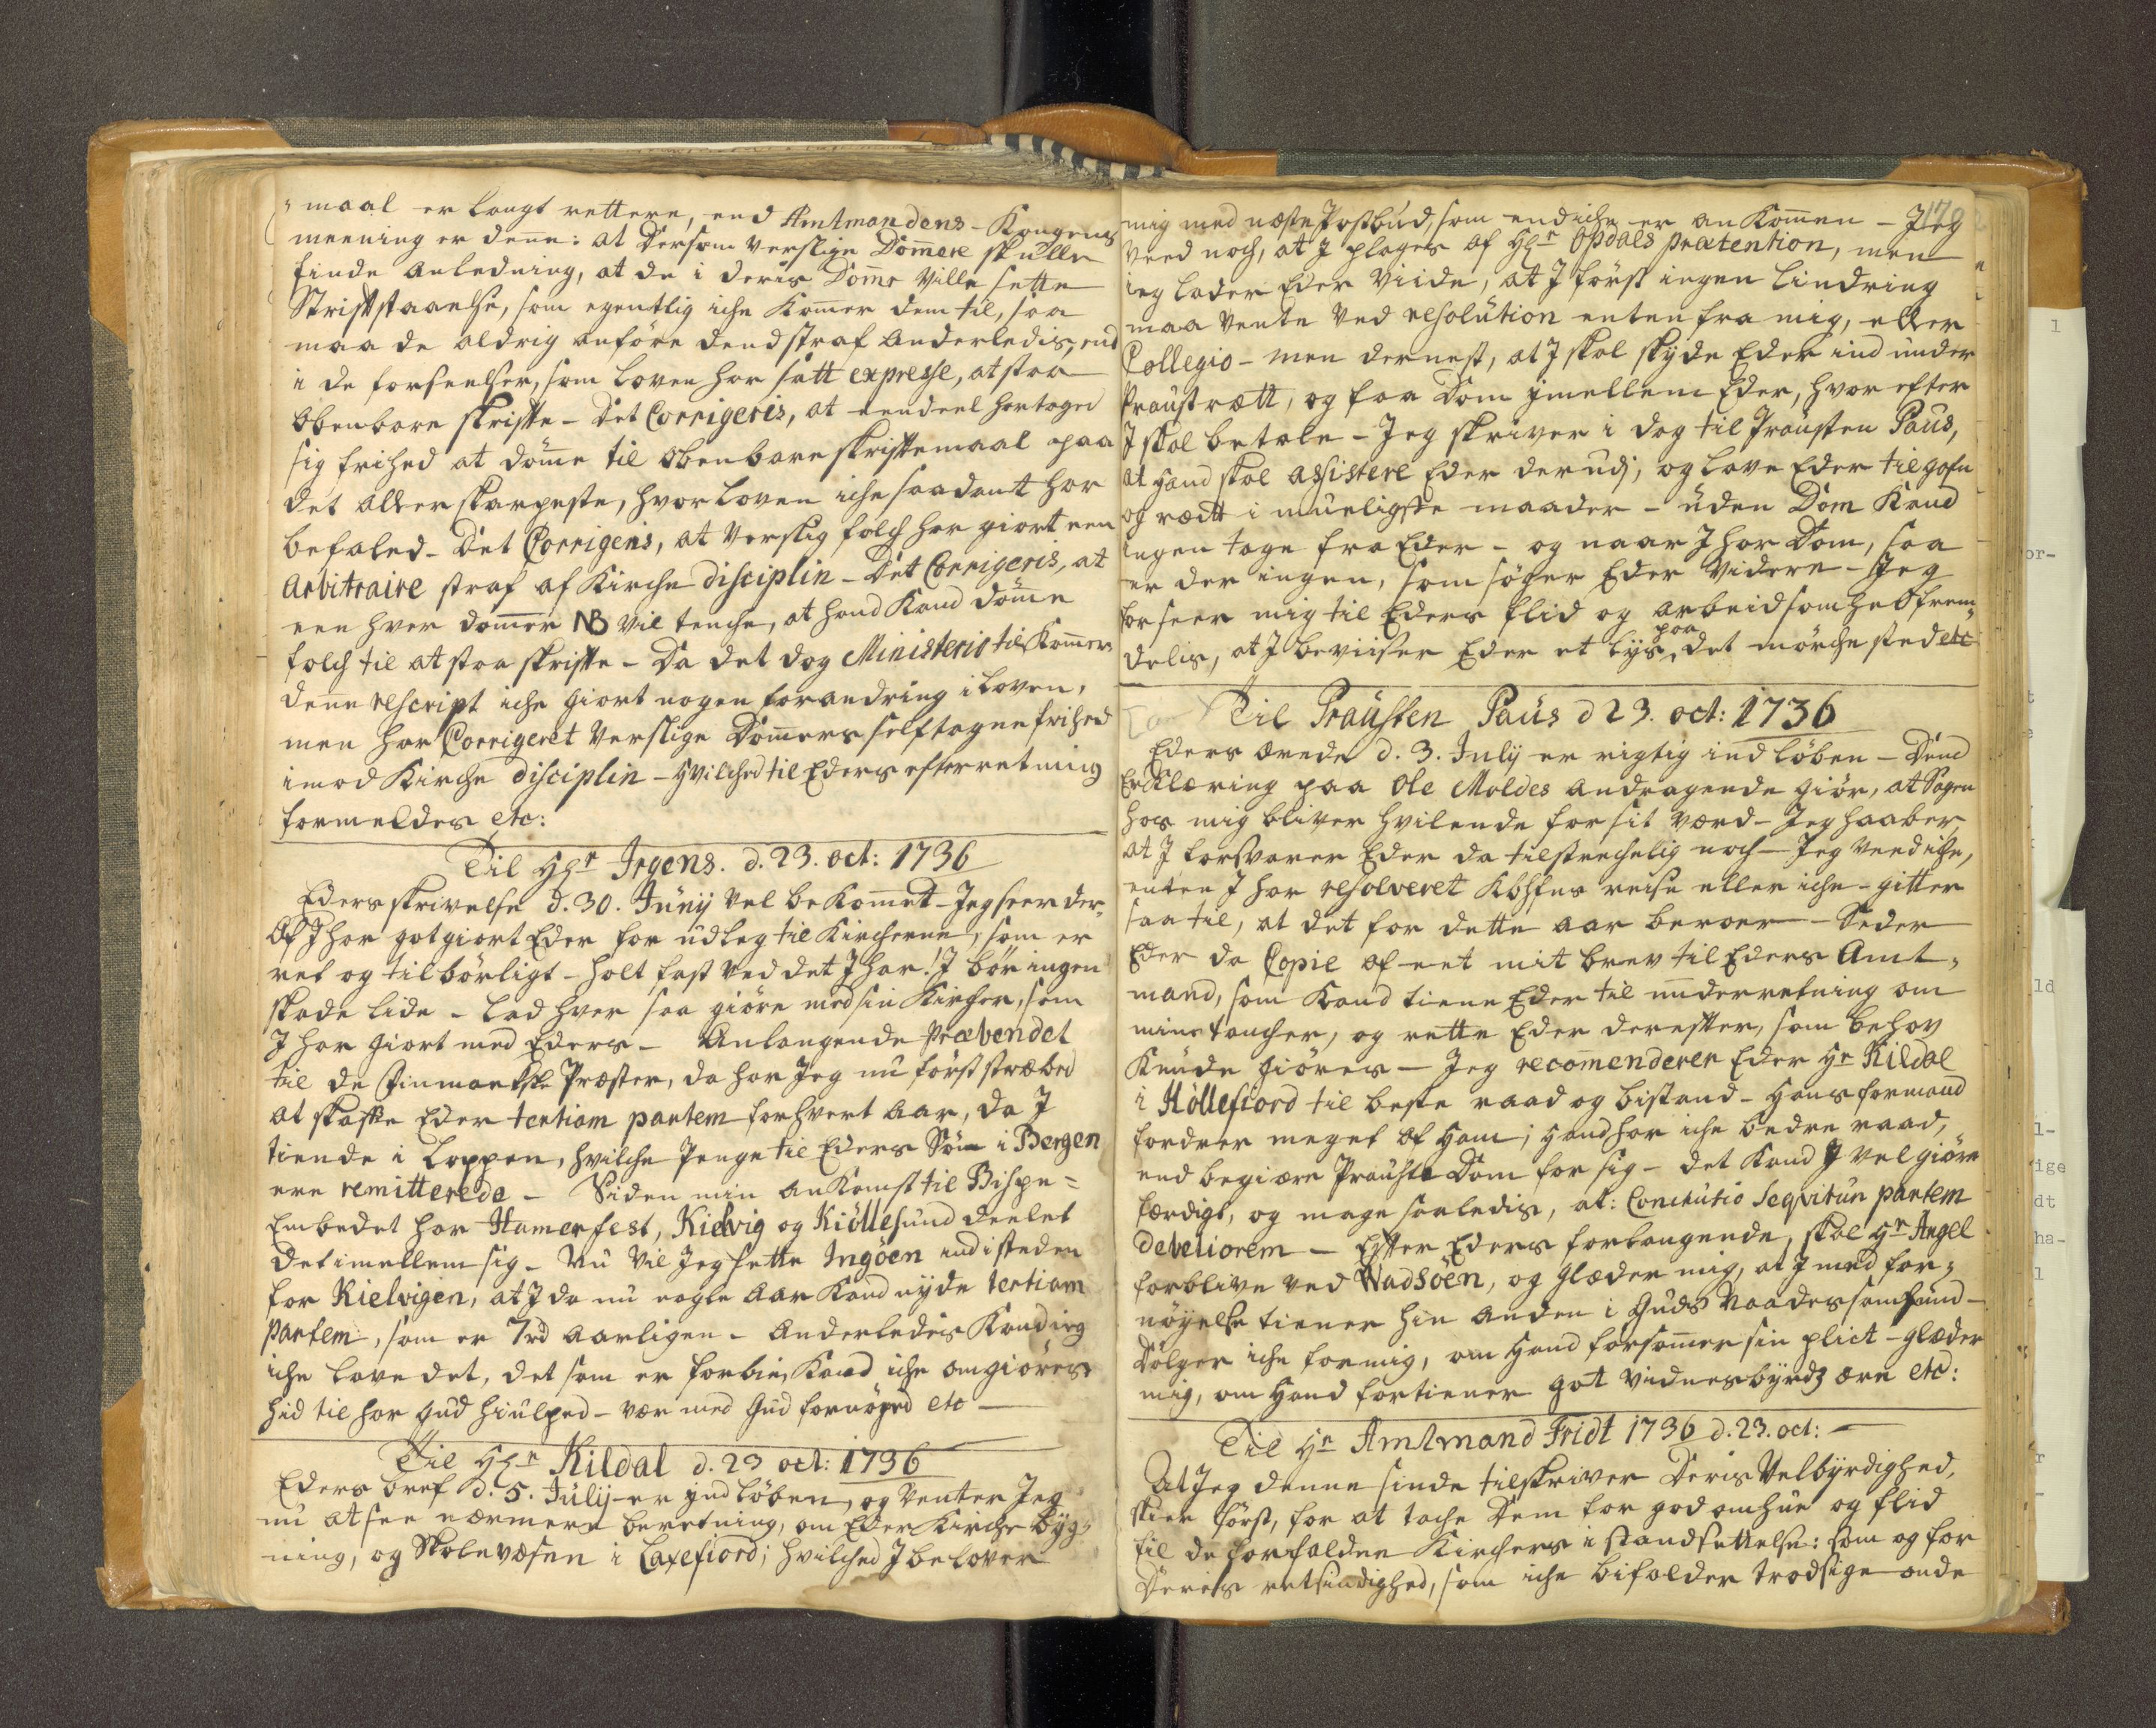 maal er langt rettere, end Amtmandens - Kongens
meening er denne: at Dersom verslige Dommere skulle
finde anledning, at de i deris Domme ville sette
Skriftstaaelse, som egentlig iche Kommer dem til, saa
maa de aldrig anføre dend straf anderledis, end
i de forseelser, som loven har satt expresse, at staa
obenbare skrifte - Det Corrigeris, at eendeel har tagen
sig frihed at dømme til obenbare skriftemaal paa
det allerskarpeste, hvor loven iche saadant har
befaled - Det Corrigeris, at verslig folch har giort een
arbitraire straf af Kirche disciplin - Det Corrigeris, at
een hver dommer NB vil tenche, at hand Kand dømme
folch til at staa skrifte - Da det dog Ministerio tilkommer
denne rescript iche giort nogen forandring i loven,
men har Corrigeret verslige Dommers selftagne frihed
imod Kirche disciplin - hvilched til Eders efterretning
formeldes etc:
Til Hr Irgens. d. 23. oct: 1736
Eders skrivelse d. 30. Junij vel bekommet - Jeg seer der,
af J har gotgiort Eder for udleg til Kircherne, som er
ret og tilbørligt - holt fast ved det J har! J bør ingen
skade lide - lad hver saa giøre med sin Kircher, som
J har giort med Eders - Anlangende Præbendet
til de Finmarkske Præster, da har Jeg nu først stræbed
at skaffe Eder tertiam partem for hvert aar, da J
tiende i Loppen, hvilche Penge til Eders Søn i Bergen
ere remitterede - Siden min ankomst til Bispe=
Embedet har Hamerfest, Kielvig og Kiøllesund deelet
det imellem sig - Nu vil Jeg sette Ingøen ind i steden
for Kielvigen, at J da nu nogle aar Kand nyde tertiam
partem, som er 7rd aarligen - Anderledis Kand ieg
iche love det, det som er forbie, Kand iche omgiøres
hid til har Gud hiulped - vær med Gud fornøyed etc -
Til Hr Kildal d. 23 oct: 1736
Eders bref d. 5. Julij er indløben, og venter Jeg
nu at see nærmere beretning, om Eder Kirche byg,
ning, og Skolevæsen i Laxefiord; hvilched J belover
178
mig med næste Postbud, som end iche er ankommen - Jeg
veed noch, at J plages af Hr Opdals prætention, men
ieg lader Eder viide, at J først ingen lindring
maa vente ved resolution enten fra mig, eller
Collegio - men dernest, at J skal skyde Eder ind under
Praustrætt, og faa Dom imellem Eder, hvorefter
J skal betale - Jeg skriver i dag til Prousten Paus,
at Hand skal assistere Eder derudj, og lave Eder tilgafn
og rætt i mueligste maader - uden Dom Kand
ingen tage fra Eder - og naar J har Dom, saa
er der ingen, som søger Eder videre - Jeg
forseer mig til Eders flid og arbeidsomhed frem,
delis, at J beviiser Eder et lys paa det mørche sted etc
Til Prausten Paus d 23. oct: 1736
Eders ærede d. 3. Julij er rigtig indløben - Dend
Erklæring paa Ole Moldes andragende giør, at Sagen
hos mig bliver hvilende for sit værd - Jeg haaber,
at J forsvarer Eder da tilstrechelig noch - Jeg veed iche,
enten J har resolveret Kbhfns reise eller iche - gitter
saa til, at det for dette aar beroer - Seder
Eder da Copie af eet mit brev til Eders Amt,
mand, som Kand tiene Eder til underretning om
mine tancher, og rette Eder derefter, som behov
Kunde giøres - Jeg recomenderer Eder Hr Kildal
i Høllefiord til beste raad og bistand - Hans formand
fordrer meget af Ham; Hand har iche bedre raad,
end begiære Prauste Dom for sig - det Kand J vel giøre
færdigt, og mage saaledis, at:
 partem
 - Efter Eders forlangende, skal Hr Angel
forblive ved Wadsøen, og glæder mig, at J med for,
nøyelse tiener hin anden i Guds Naades samfund -
Dølger iche for mig, om Hand forsømmer sin plict - glæder
mig, om Hand fortiener got vidnesbyrdz ære etc:
Til Hr Amtmand Fridt 1736 d. 23. oct: -
At Jeg denne sinde tilskriver Deris Velbyrdighed,
skier først, for at tache Dem for god omhue og flid
til de forfaldne Kirchers i standsettelse: som og for
Deris retsindighed, som iche bifalder trodsige onde